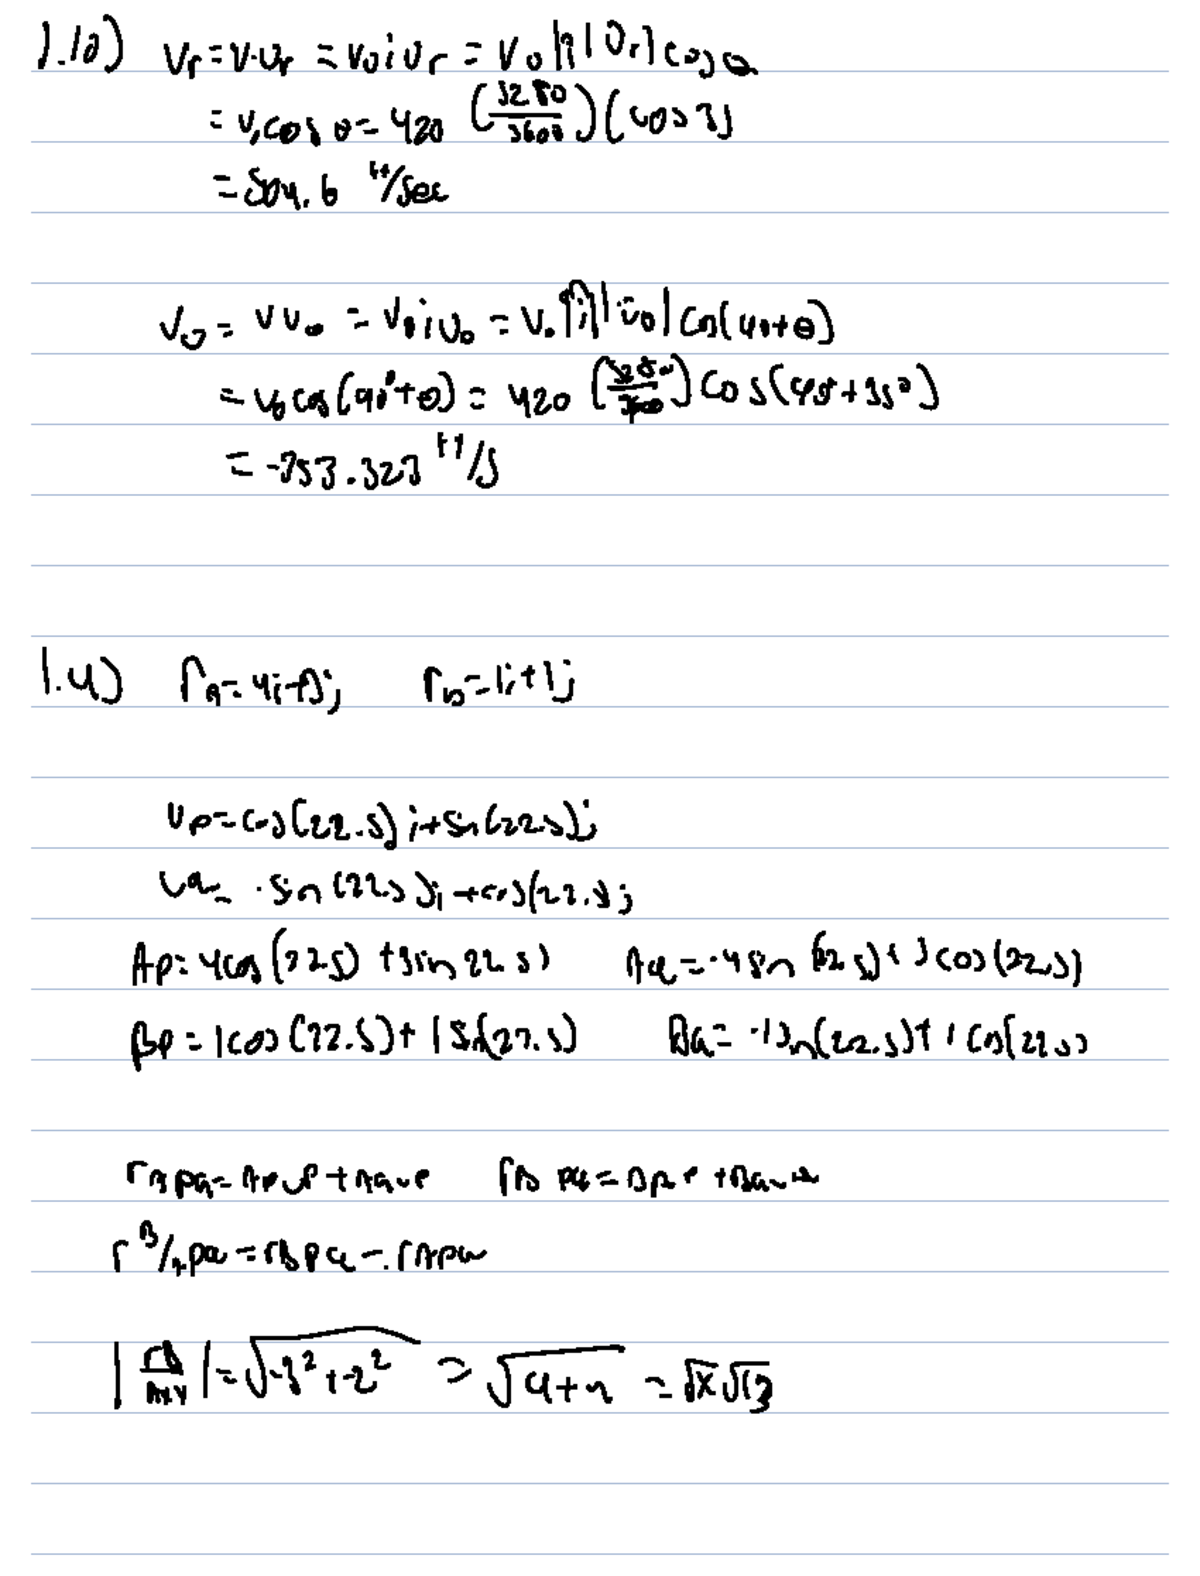 1.10) Vr = V·Ur = V0 i Ur = V0 |î| |Ur| cos θ
= V0 cos θ = 420 (3280/3600) (cos 35
= 504.6 ft/sec
Vθ = V Uθ = V0 i Uθ = V0 |î| |Uθ| cos(90+θ)
= V0 cos(90°+θ) = 420 (3280/3600) cos(90°+35°)
= -353.323 ft/s
1.4) rA = 4i+3j rB = 1i+1j
Up = cos(22.5) i + sin(22.5)j
Uq = -sin(22.5)i + cos(22.5)j
Ap = 4cos(22.5) + 3sin 22.5) Aq = -4sin(22.5) + 3cos(22.5)
Bp = 1cos(22.5) + 1sin(22.5) Bq = -1sin(22.5) + 1cos(22.5)
rA pq = Ap up + Aq up rB pq = Bp
r B/A pq = rB pq - rA pq
| rB/A xy | = √-3² + -2² = √9+4 = √13